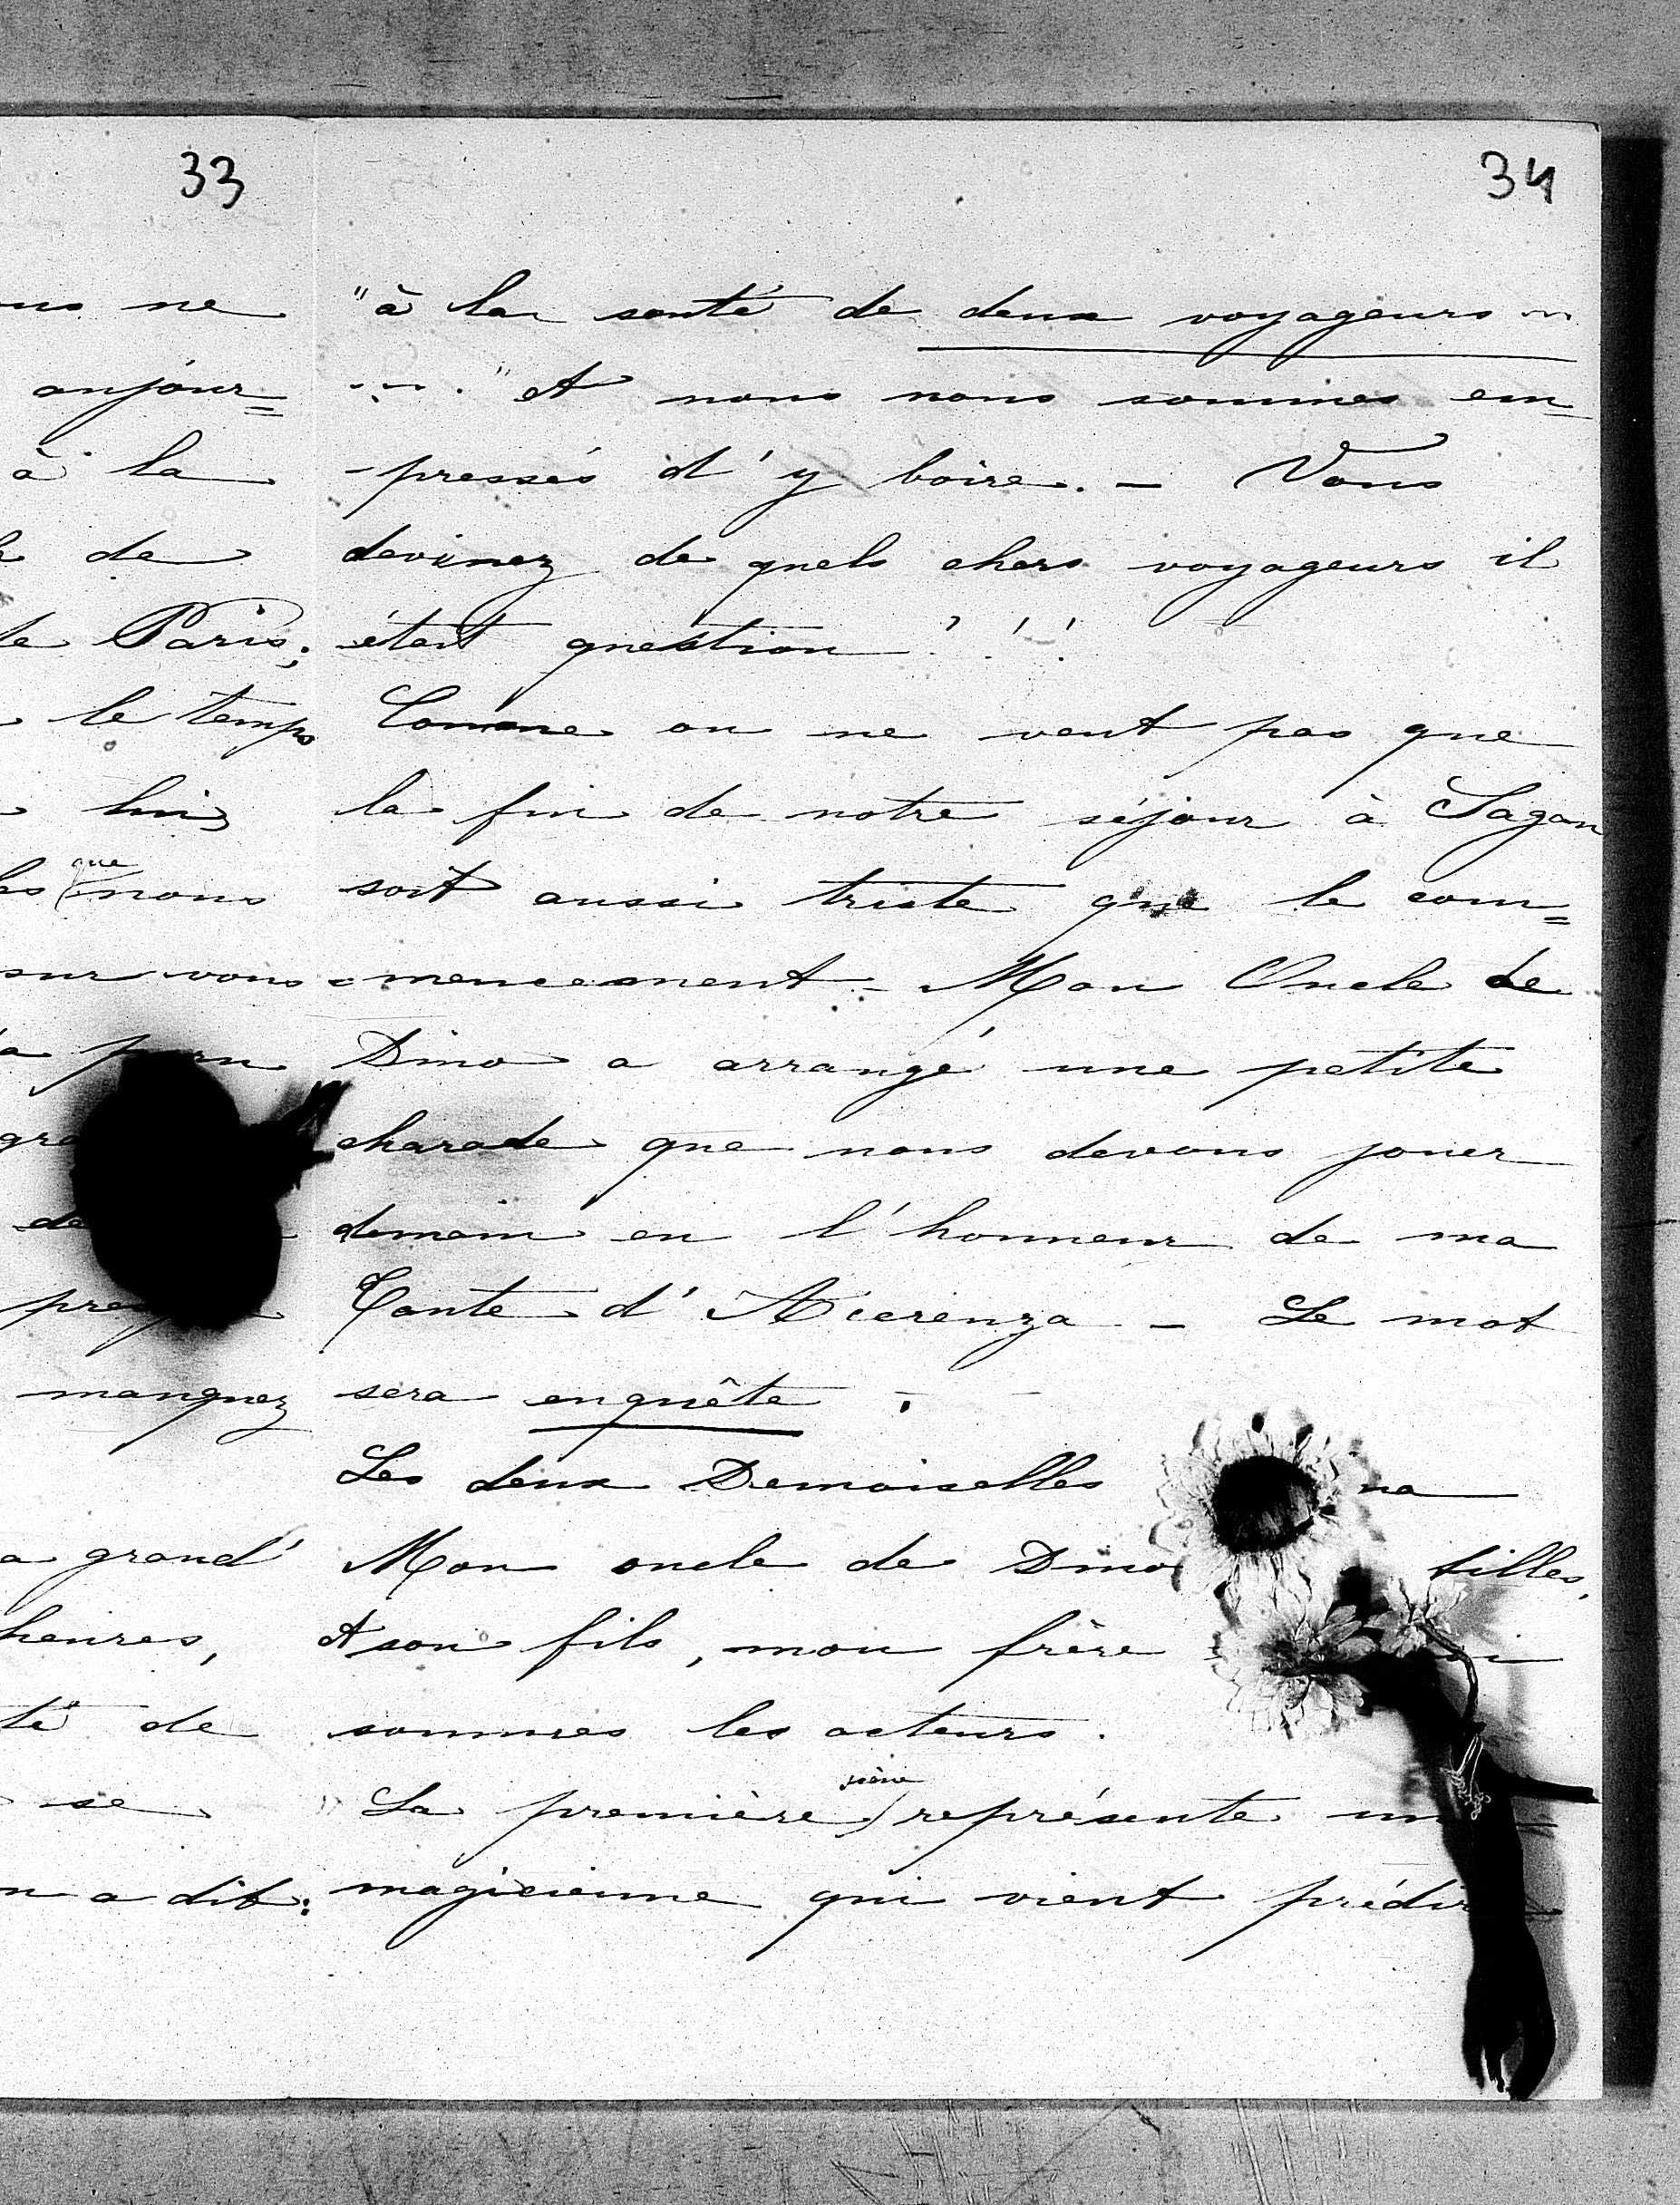 33
ne
aujour=
à la
de
de Paris;
le temps
lui
que
nous
sur vous
a
manquez
a grand'
heures,
de
se
a dit:
34
"à la santé de deux voyageurs ...
...." Et nous nous sommes em-
-pressés d'y boire. - Vous
devinez de quels chers voyageurs il
était question !!!
Comme on ne veut pas que
la fin de notre séjour à Sagan
soit aussi triste que le com=
=mencement - Mon Oncle de
Dino a arrangé une petite
charade que nous devons jouer
demain en l'honneur de ma
Tante d'Acerenza - Le mot
sera enquête.
Les deux Demoiselles
Mon oncle de Dino filles,
et son fils, mon frère
sommes les acteurs.
scène
La première représente
magicienne qui vient